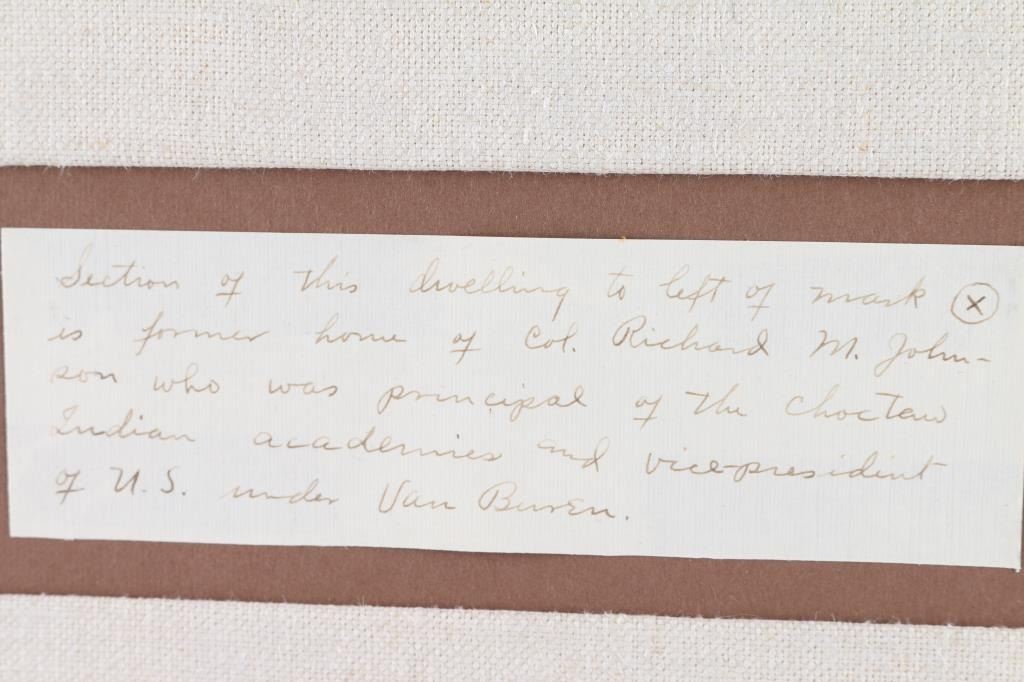 Section of this dwelling to left of mark ⓧ
is former home of Col. Richard M. John-
son who was principal of the Choctaw
Indian academies and vice-president
of U.S. under Van Buren.